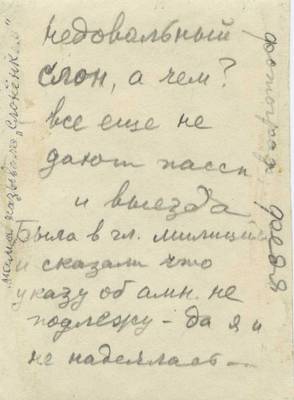 недовальный
слон, а чем?
все еще не
дают пассп
и выезда
Была в гл. милиции
и сказали что
указу об амн. не
подлежу - да я и
не надеялась —
мама называла „Слонёнком"